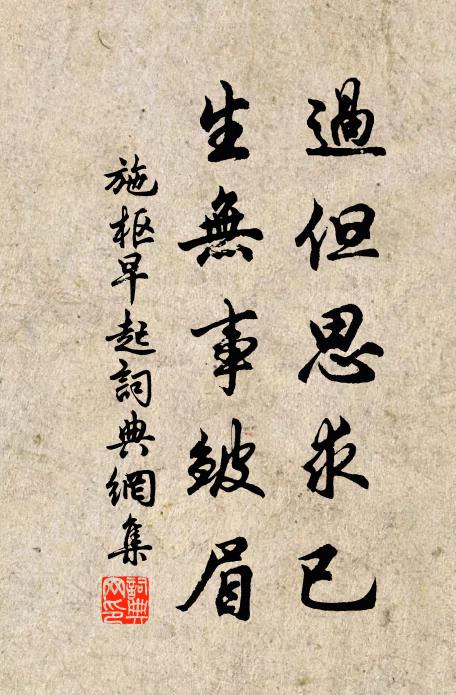 過但思求已
生無事皺眉
施枢早起詞典網集
詞典網印